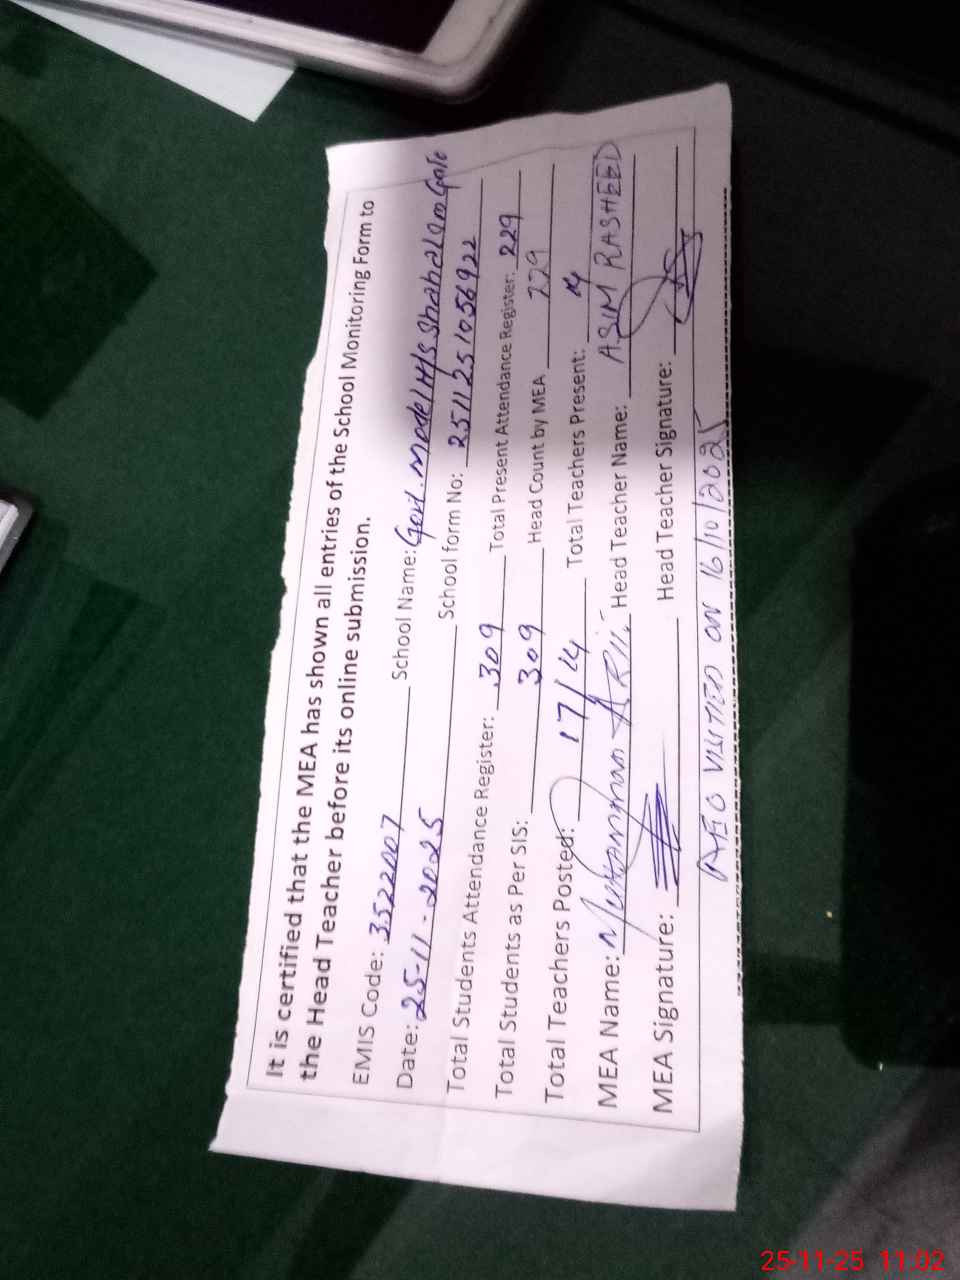 It is certified that the MEA has shown all entries of the School Monitoring Form to
the Head Teacher before its online submission.
EMIS Code: 35222007 School Name: Govt. Model H/S Shahalam Gate
Date: 25-11-2025 School form No: 2511251056922
Total Students Attendance Register: 309 Total Present Attendance Register: 229
Total Students as Per SIS: 309 Head Count by MEA 229
Total Teachers Posted: 17/14 Total Teachers Present: 14
MEA Name: Muhammad Head Teacher Name: ASIM RASHEED
MEA Signature: Head Teacher Signature:
AEO VISITED ON 16/10/2025
25-11-25 11:02